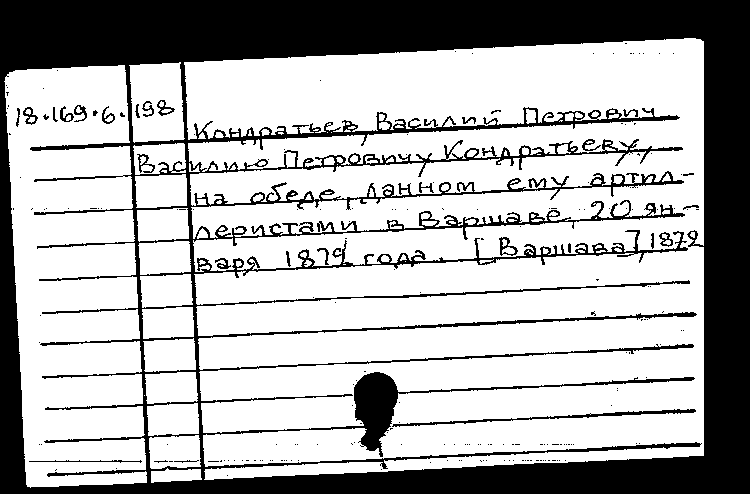 18.169.6.198
Кондратьев, Василий Петрович
Василию Петровичу Кондратьеву,
на обеде, данном ему артил-
леристами в Варшаве, 20 ян-
варя 1879 года. [Варшава], 1879